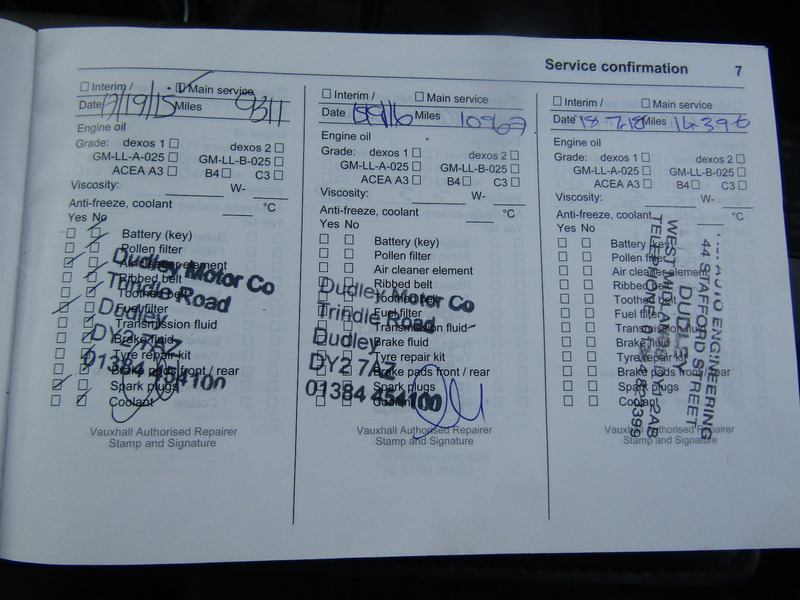 Service confirmation 7
Interim / Main service
Date Miles 9311
Engine oil
Grade: dexos 1 dexos 2
GM-LL-A-025 GM-LL-B-025
ACEA A3 B4 C3
Viscosity: W-
Anti-freeze, coolant °C
Yes No
Battery (key)
Pollen filter
Air cleaner element
Ribbed belt
Toothed belt
Fuel filter
Transmission fluid
Brake fluid
Tyre repair kit
Brake pads front / rear
Spark plugs
Coolant
Dudley Motor Co
Trindle Road
Dudley
DY2 7AZ
01384 454100
Vauxhall Authorised Repairer
Stamp and Signature
Interim / Main service
Date Miles
Engine oil
Grade: dexos 1 dexos 2
GM-LL-A-025 GM-LL-B-025
ACEA A3 B4 C3
Viscosity: W-
Anti-freeze, coolant °C
Yes No
Battery (key)
Pollen filter
Air cleaner element
Ribbed belt
Toothed belt
Fuel filter
Transmission fluid
Brake fluid
Tyre repair kit
Brake pads front / rear
Spark plugs
Coolant
Dudley Motor Co
Trindle Road
Dudley
DY2 7AZ
01384 454100
Vauxhall Authorised Repairer
Stamp and Signature
Interim / Main service
Date 18 7.18 Miles
Engine oil
Grade: dexos 1 dexos 2
GM-LL-A-025 GM-LL-B-025
ACEA A3 B4 C3
Viscosity: W-
Anti-freeze, coolant °C
Yes No
Battery (key)
Pollen filter
Air cleaner element
Ribbed belt
Toothed belt
Fuel filter
Transmission fluid
Brake fluid
Tyre repair kit
Brake pads front / rear
Spark plugs
Coolant
AUTO ENGINEERING
44 STAFFORD STREET
DUDLEY
WEST MIDLANDS
TELEPHONE
Vauxhall Authorised Repairer
Stamp and Signature